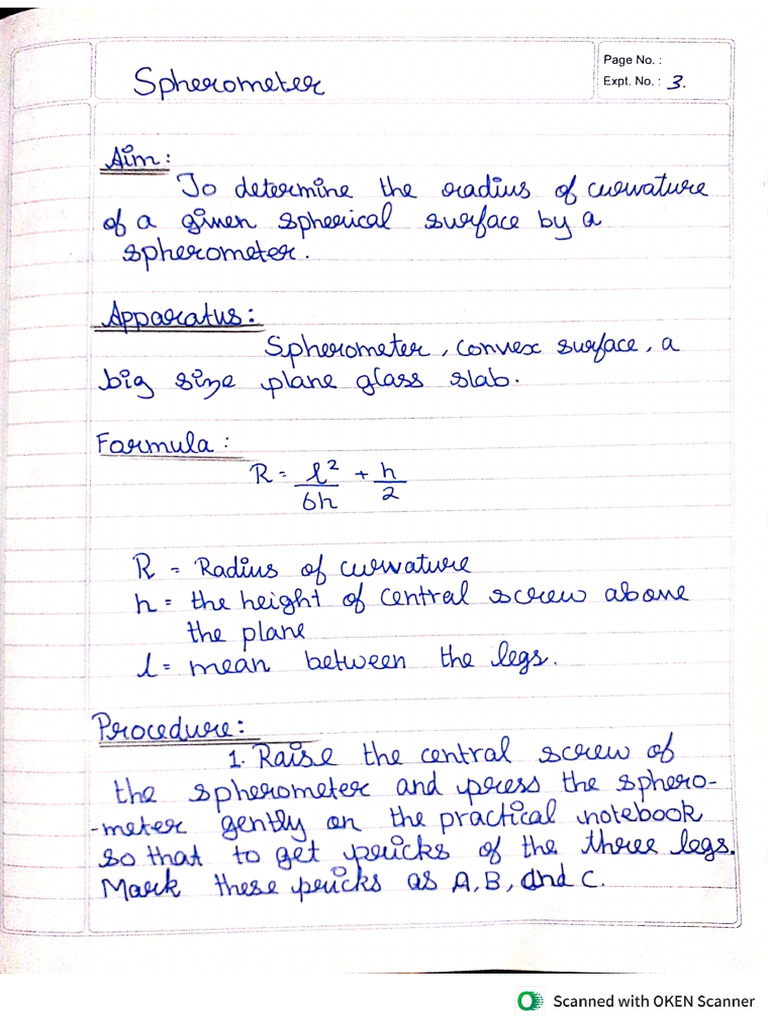 Spherometer
Page No. :
Expt. No. : 3.
Aim:
To determine the radius of curvature
of a given spherical surface by a
spherometer.
Apparatus:
Spherometer, convex surface, a
big size plane glass slab.
Formula:
R = l²/6h + h/2
R = Radius of curvature
h = the height of central screw above
the plane
l = mean between the legs.
Procedure:
1. Raise the central screw of
the spherometer and press the sphero-
-meter gently on the practical notebook
so that to get pricks of the three legs.
Mark these pricks as A, B, and C.
Scanned with OKEN Scanner